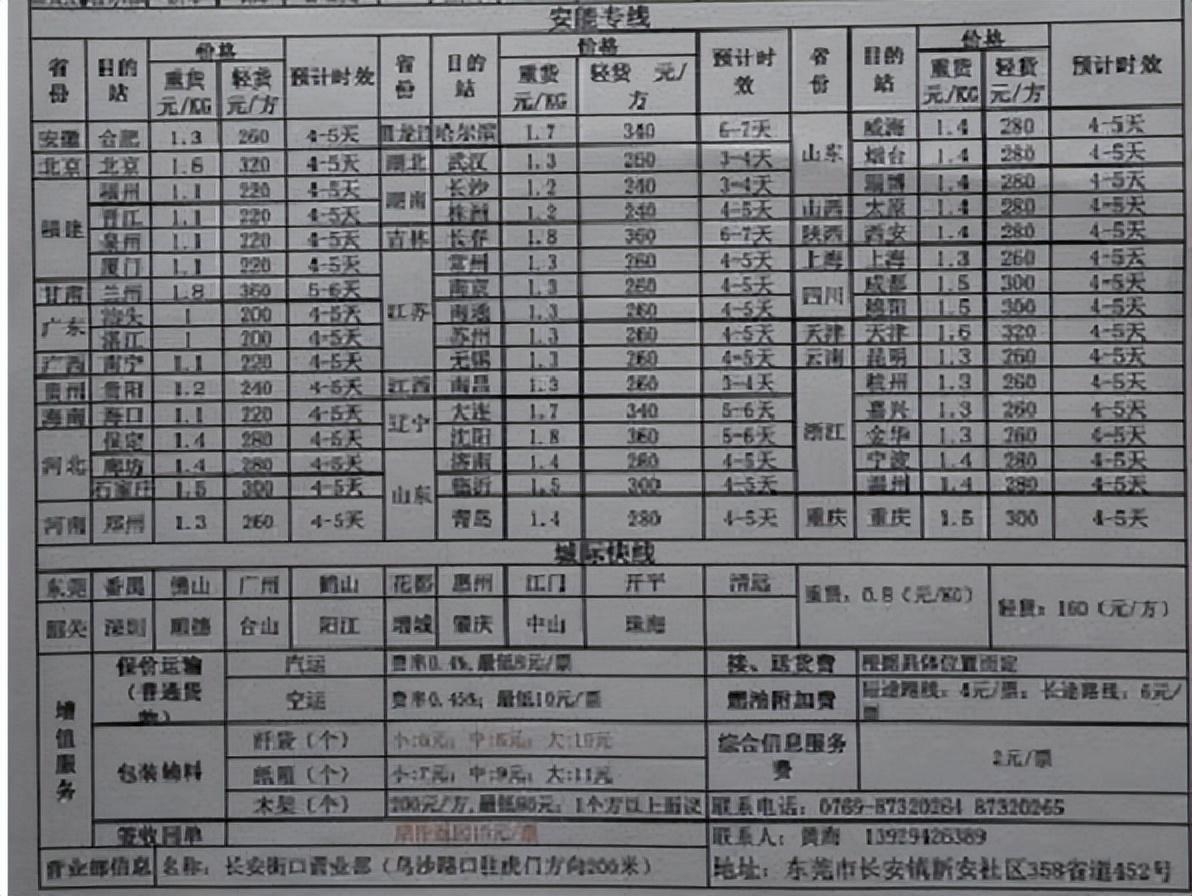 安能专线
省份 目的站 价格 预计时效 省份 目的站 价格 预计时效 省份 目的站 价格 预计时效
重货元/KG 轻货元/方 重货元/KG 轻货 元/方 重货元/KG 轻货元/方
安徽 合肥 1.3 260 4-5天 黑龙江 哈尔滨 1.7 340 6-7天 山东 威海 1.4 280 4-5天
北京 北京 1.6 320 4-5天 湖北 武汉 1.3 260 3-4天 烟台 1.4 280 4-5天
福建 福州 1.1 220 4-5天 湖南 长沙 1.2 240 3-4天 淄博 1.4 280 4-5天
晋江 1.1 220 4-5天 株洲 1.2 240 4-5天 山西 太原 1.4 280 4-5天
泉州 1.1 220 4-5天 吉林 长春 1.8 360 6-7天 陕西 西安 1.4 280 4-5天
厦门 1.1 220 4-5天 江苏 常州 1.3 260 4-5天 上海 上海 1.3 260 4-5天
甘肃 兰州 1.8 360 5-6天 南京 1.3 260 4-5天 四川 成都 1.5 300 4-5天
广东 汕头 1 200 4-5天 南通 1.3 260 4-5天 绵阳 1.5 300 4-5天
湛江 1 200 4-5天 苏州 1.3 260 4-5天 天津 天津 1.6 320 4-5天
广西 南宁 1.1 220 4-5天 无锡 1.3 260 4-5天 云南 昆明 1.3 260 4-5天
贵州 贵阳 1.2 240 4-5天 江西 南昌 1.3 260 3-4天 浙江 杭州 1.3 260 4-5天
海南 海口 1.1 220 4-5天 辽宁 大连 1.7 340 5-6天 嘉兴 1.3 260 4-5天
河北 保定 1.4 280 4-5天 沈阳 1.8 360 5-6天 金华 1.3 260 4-5天
廊坊 1.4 280 4-5天 山东 济南 1.4 280 4-5天 宁波 1.4 280 4-5天
石家庄 1.5 300 4-5天 临沂 1.5 300 4-5天 温州 1.4 280 4-5天
河南 郑州 1.3 260 4-5天 青岛 1.4 280 4-5天 重庆 重庆 1.5 300 4-5天
城际快线
东莞 番禺 佛山 广州 鹤山 花都 惠州 江门 开平 清远 重货：0.8（元/KG） 轻货：160（元/方）
韶关 深圳 顺德 台山 阳江 增城 肇庆 中山 珠海
增值服务 保价运输（普通货物） 汽运 费率0.4%，最低8元/票 接、送货费 根据具体位置而定
空运 费率0.45%；最低10元/票 燃油附加费 短途路线：4元/票；长途路线：6元/票
包装辅料 纤袋（个） 小:6元；中:8元；大:10元 综合信息服务费 2元/票
纸箱（个） 小:7元；中:9元；大:11元
木架（个） 200元/方,最低80元；1个方以上面议 联系电话：0769-87320264 87320265
签收回单 联系人：黄海 13929426389
营业部信息 名称：长安街口营业部（乌沙路口驻虎门方向200米） 地址：东莞市长安镇新安社区358省道452号